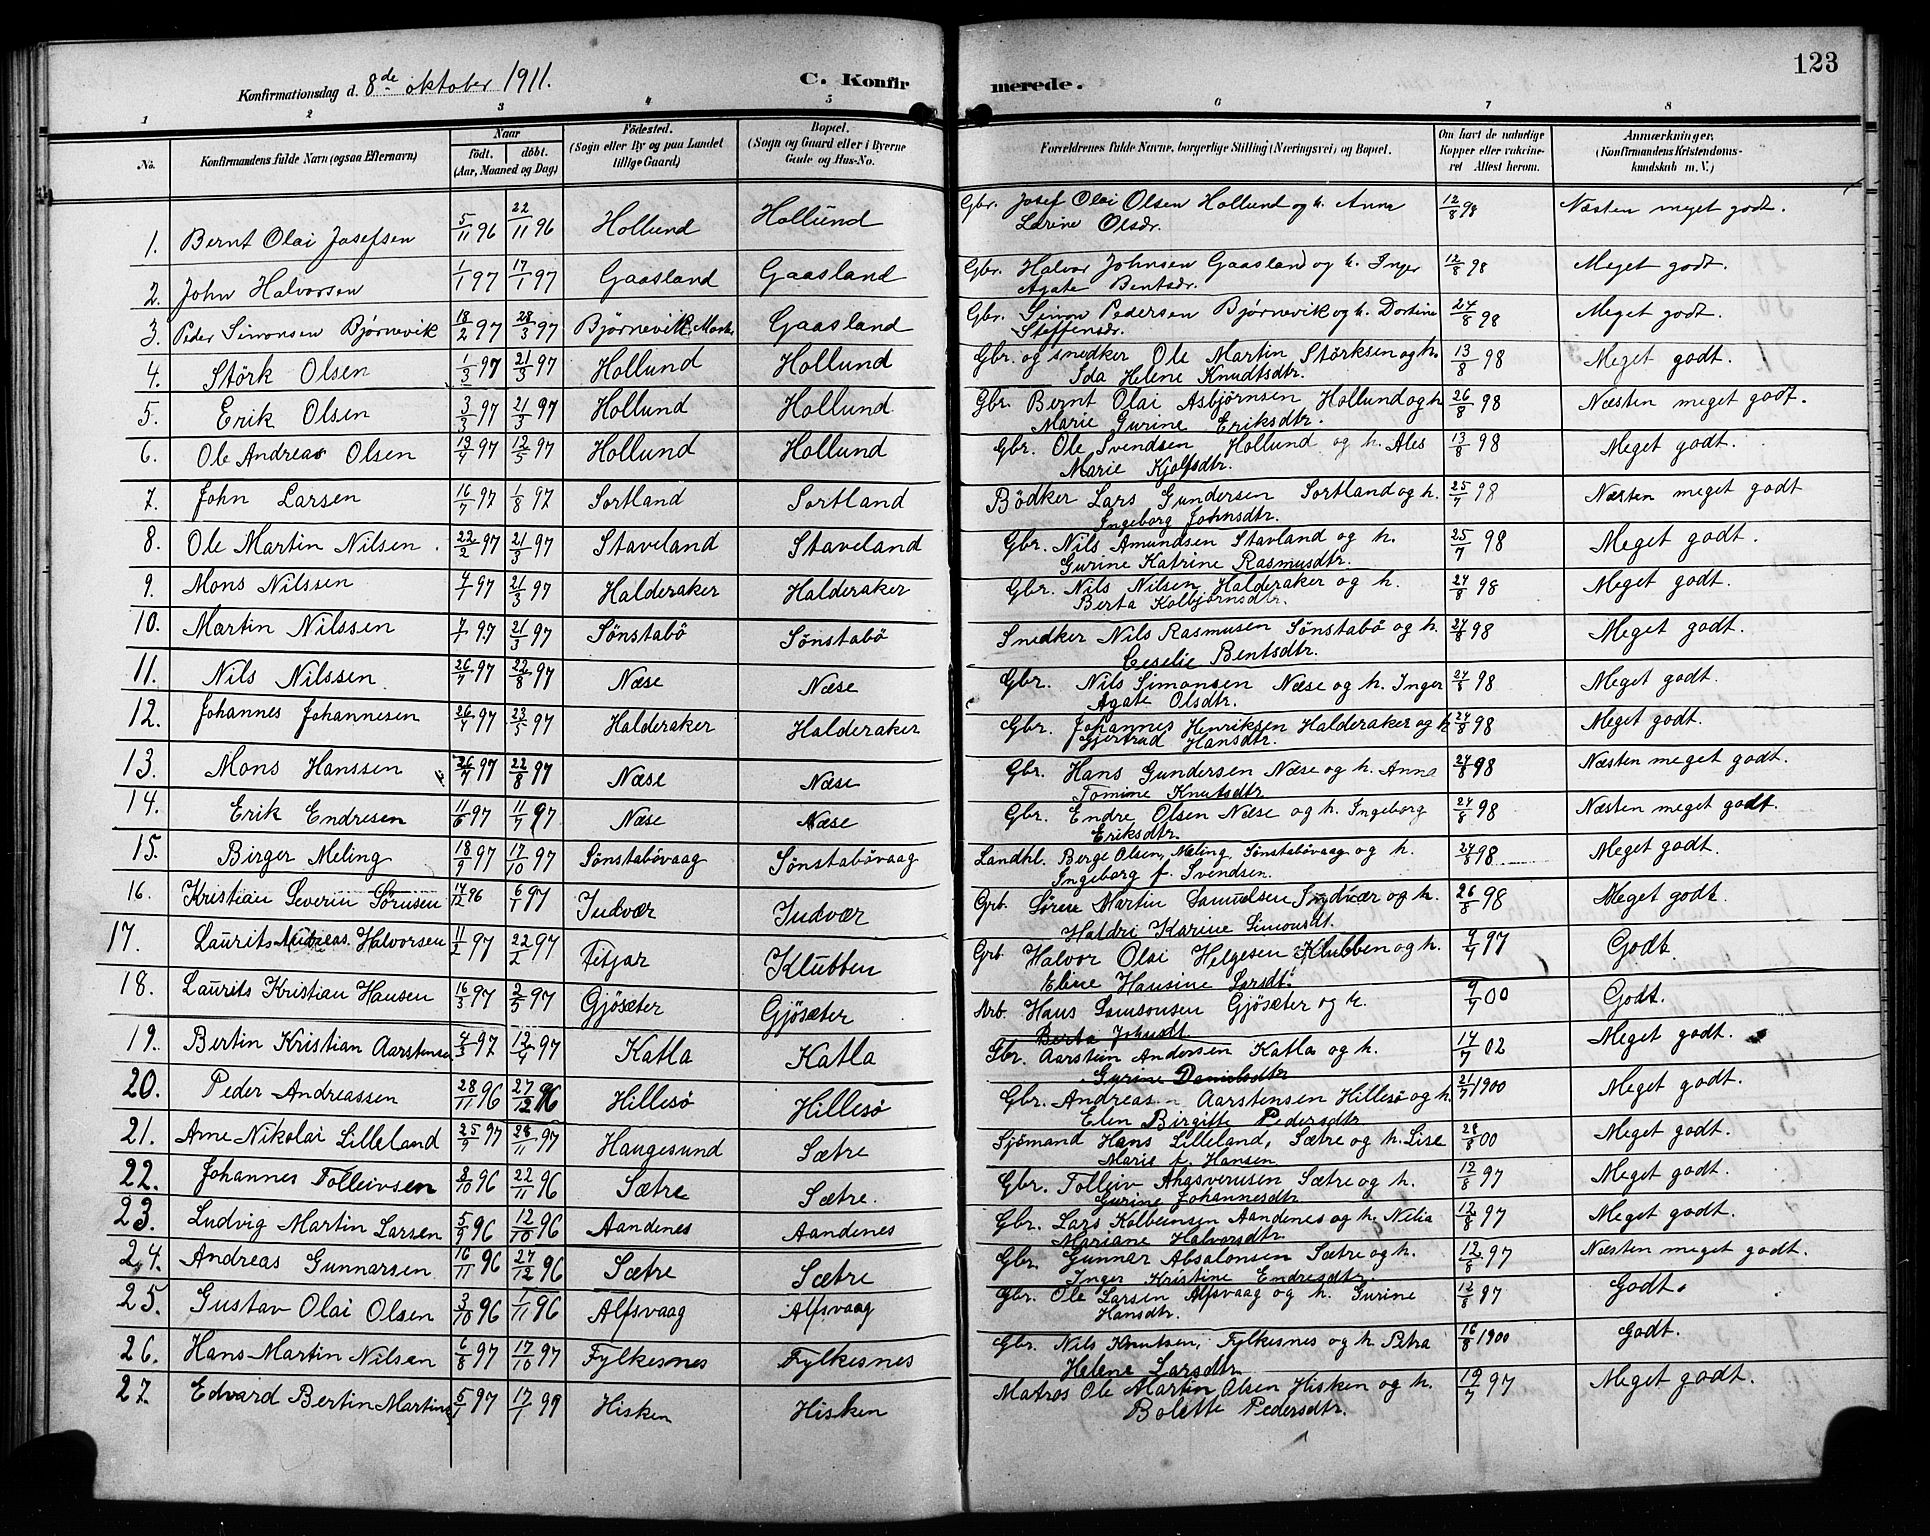 123
Konfirmationsdag d. 8de oktober 1911. C. Konfirmerede.
1 2 3 4 5 6 7 8
No. Konfirmandens fulde Navn (ogsaa Efternavn) Naar født. døbt. (Aar, Maaned og Dag) Fødested. (Sogn eller By og paa Landet tillige Gaard) Bopæl. (Sogn og Gaard eller i Byerne Gade og Hus-No. Forældrenes fulde Navne, borgerlige Stilling (Næringsvei) og Bopæl. Om havt de naturlige Kopper eller vaccineret Attest herom. Anmærkninger. (Konfirmandens Kristendomskundskab m. V.)
1. Bernt Olai Josefsen 5/11 96 22/11 96 Hollund Hollund Gbr. Josef Olai Olsen Hollund og h. Anna Larine Olsdr. 12/8 98 Næsten meget godt.
2. John Halvorsen 1/1 97 17/1 97 Gaasland Gaasland Gbr. Halvor Johnsen Gaasland og h. Inger Agate Bentsdr. 12/8 98 Meget godt.
3. Peder Simonsen Bjørnevik 18/2 97 28/3 97 Bjørnevik, Gaasland Gbr. Simon Pedersen Bjørnevik og h. Dortine Steffensdr. 24/8 98 Meget godt.
4. Störk Olsen 1/3 97 21/3 97 Hollund Hollund Gbr. og snedker Ole Martin Störksen og h. Ida Helene Knudtsdtr. 13/8 98 Meget godt.
5. Erik Olsen 3/3 97 21/3 97 Hollund Hollund Gbr. Bernt Olai Asbjørnsen Hollund og h Marie Gurine Eriksdtr. 26/8 98 Næsten meget godt.
6. Ole Andreas Olsen 12/5 97 Hollund Hollund Gbr. Ole Svendsen Hollund og h. Ales Marie Kjolfsdtr. 13/8 98 Meget godt.
7. John Larsen 16/7 97 1/8 97 Sortland Sortland Bödker Lars Gundersen Sortland og h. Ingeborg Johnsdtr. 25/7 98 Næsten meget godt
8. Ole Martin Nilsen 22/2 97 21/3 97 Staveland Staveland Gbr. Nils Amundsen Stavland og h. Gurine Katrine Rasmusdtr. 25/7 98 Meget godt.
9. Mons Nilssen 97 21/3 97 Halderaker Halderaker Gbr. Nils Nilsen Halderaker og h. Berta Kolbjørnsdtr. 24/8 98 Meget godt.
10. Martin Nilssen 97 21/3 97 Sönstabö Sönstabö Snedker Nils Rasmusen Sönstabö og h. Ceselie Bentsdtr. 24/8 98 Meget godt.
11. Nils Nilssen 26/7 97 22/8 97 Næse Næse Gbr. Nils Simonsen Næse og h. Inger Agate Olsdtr. 24/8 98 Meget godt.
12. Johannes Johannesen 26/4 97 23/5 97 Halderaker Halderaker Gbr. Johannes Henriksen Halderaker og h Gjertrud Hansdtr. 24/8 98 Meget godt.
13. Mons Hanssen 26/7 97 22/8 97 Næse Næse Gbr. Hans Gundersen Næse og h. Anna Tomine Knutsdtr 24/8 98 Næsten meget godt.
14. Erik Endresen 11/6 97 11/7 97 Næse Næse Gbr. Endre Olsen Næse og h. Ingeborg Eriksdtr. 24/8 98 Næsten meget godt.
15. Birger Meling 18/9 97 17/10 97 Sönstabövaag Sönstabövaag Landhl. Berge Olsen, Meling, Sönstabövaag og h. Ingeborg f. Svendsen. 24/8 98 Meget godt.
16. Kristian Severin Sørnsen 14/12 96 6/1 97 Indvær Indvær Grb. Sören Martin Samuelsen Indvær og h. Haldri Karine Simonsdt. 26/8 98 Meget godt.
17. Laurits Andreas Halvorsen 11/2 97 22/2 97 Fitjar Klubben Grb. Halvor Olai Helgesen Klubben og h. Elene Hansine Larsdt. 97 Godt.
18. Laurits Kristian Hansen 16/3 97 2/5 97 Gjösæter Gjösæter Arb. Hans Samsonsen Gjösæter og h. Berta Johnsdt 00 Godt.
19. Bertin Kristian Aarstensen 4/3 97 12/4 97 Katla Katla Gbr. Aarstein Andersen Katla og h. Gurine Danielsdtr 17/7 02 Meget godt.
20. Peder Andreassen 28/11 96 27/12 96 Hillesö Hillesö Gbr. Andreas Aarstensen Hillesö og h. Elen Birgitte Pedersdtr 21/7 1900 Meget godt.
21. Arne Nikolai Lilleland 25/9 97 28/11 97 Haugesund Sætre Sjömand Hans Lilleland, Sætre og h. Lise Marie f. Hansen. 28/8 00 Meget godt.
22. Johannes Tolleivsen 8/10 96 22/11 96 Sætre Sætre. Gbr. Tolleiv Ahasverusen Sætre og h. Gurine Johannesdtr 12/8 97 Meget godt.
23. Ludvig Martin Larsen 5/9 96 12/10 96 Aandenes Aandenes Gbr. Lars Kolbeinsen Aandenes og h. Nelia Mariane Halvorsdtr. 12/8 97 Meget godt.
24. Andreas Gunnarsen 16/11 96 27/12 96 Sætre Sætre Gbr. Gunnar Absalonsen Sætre og h. Inger Kristine Endresdtr. 12/8 97 Næsten meget godt.
25. Gustav Olai Olsen 3/10 96 1/11 96 Alfsvaag Alfsvaag Gbr. Ole Larsen Alfsvaag og h. Gurine Hansdtr. 12/8 97 Godt.
26. Hans Martin Nilsen 6/8 97 17/10 97 Fylkesnes Fylkesnes Gbr. Nils Knutsen, Fylkesnes og h. Petra Helene Larsdtr. 16/8 1900 Godt.
27. Edvard Bertin Martins 5/1 97 17/1 99 Hisken Hisken Matros Ole Martin Olsen Hisken og h. Bolette Pedersdtr. 19/7 97 Meget godt.